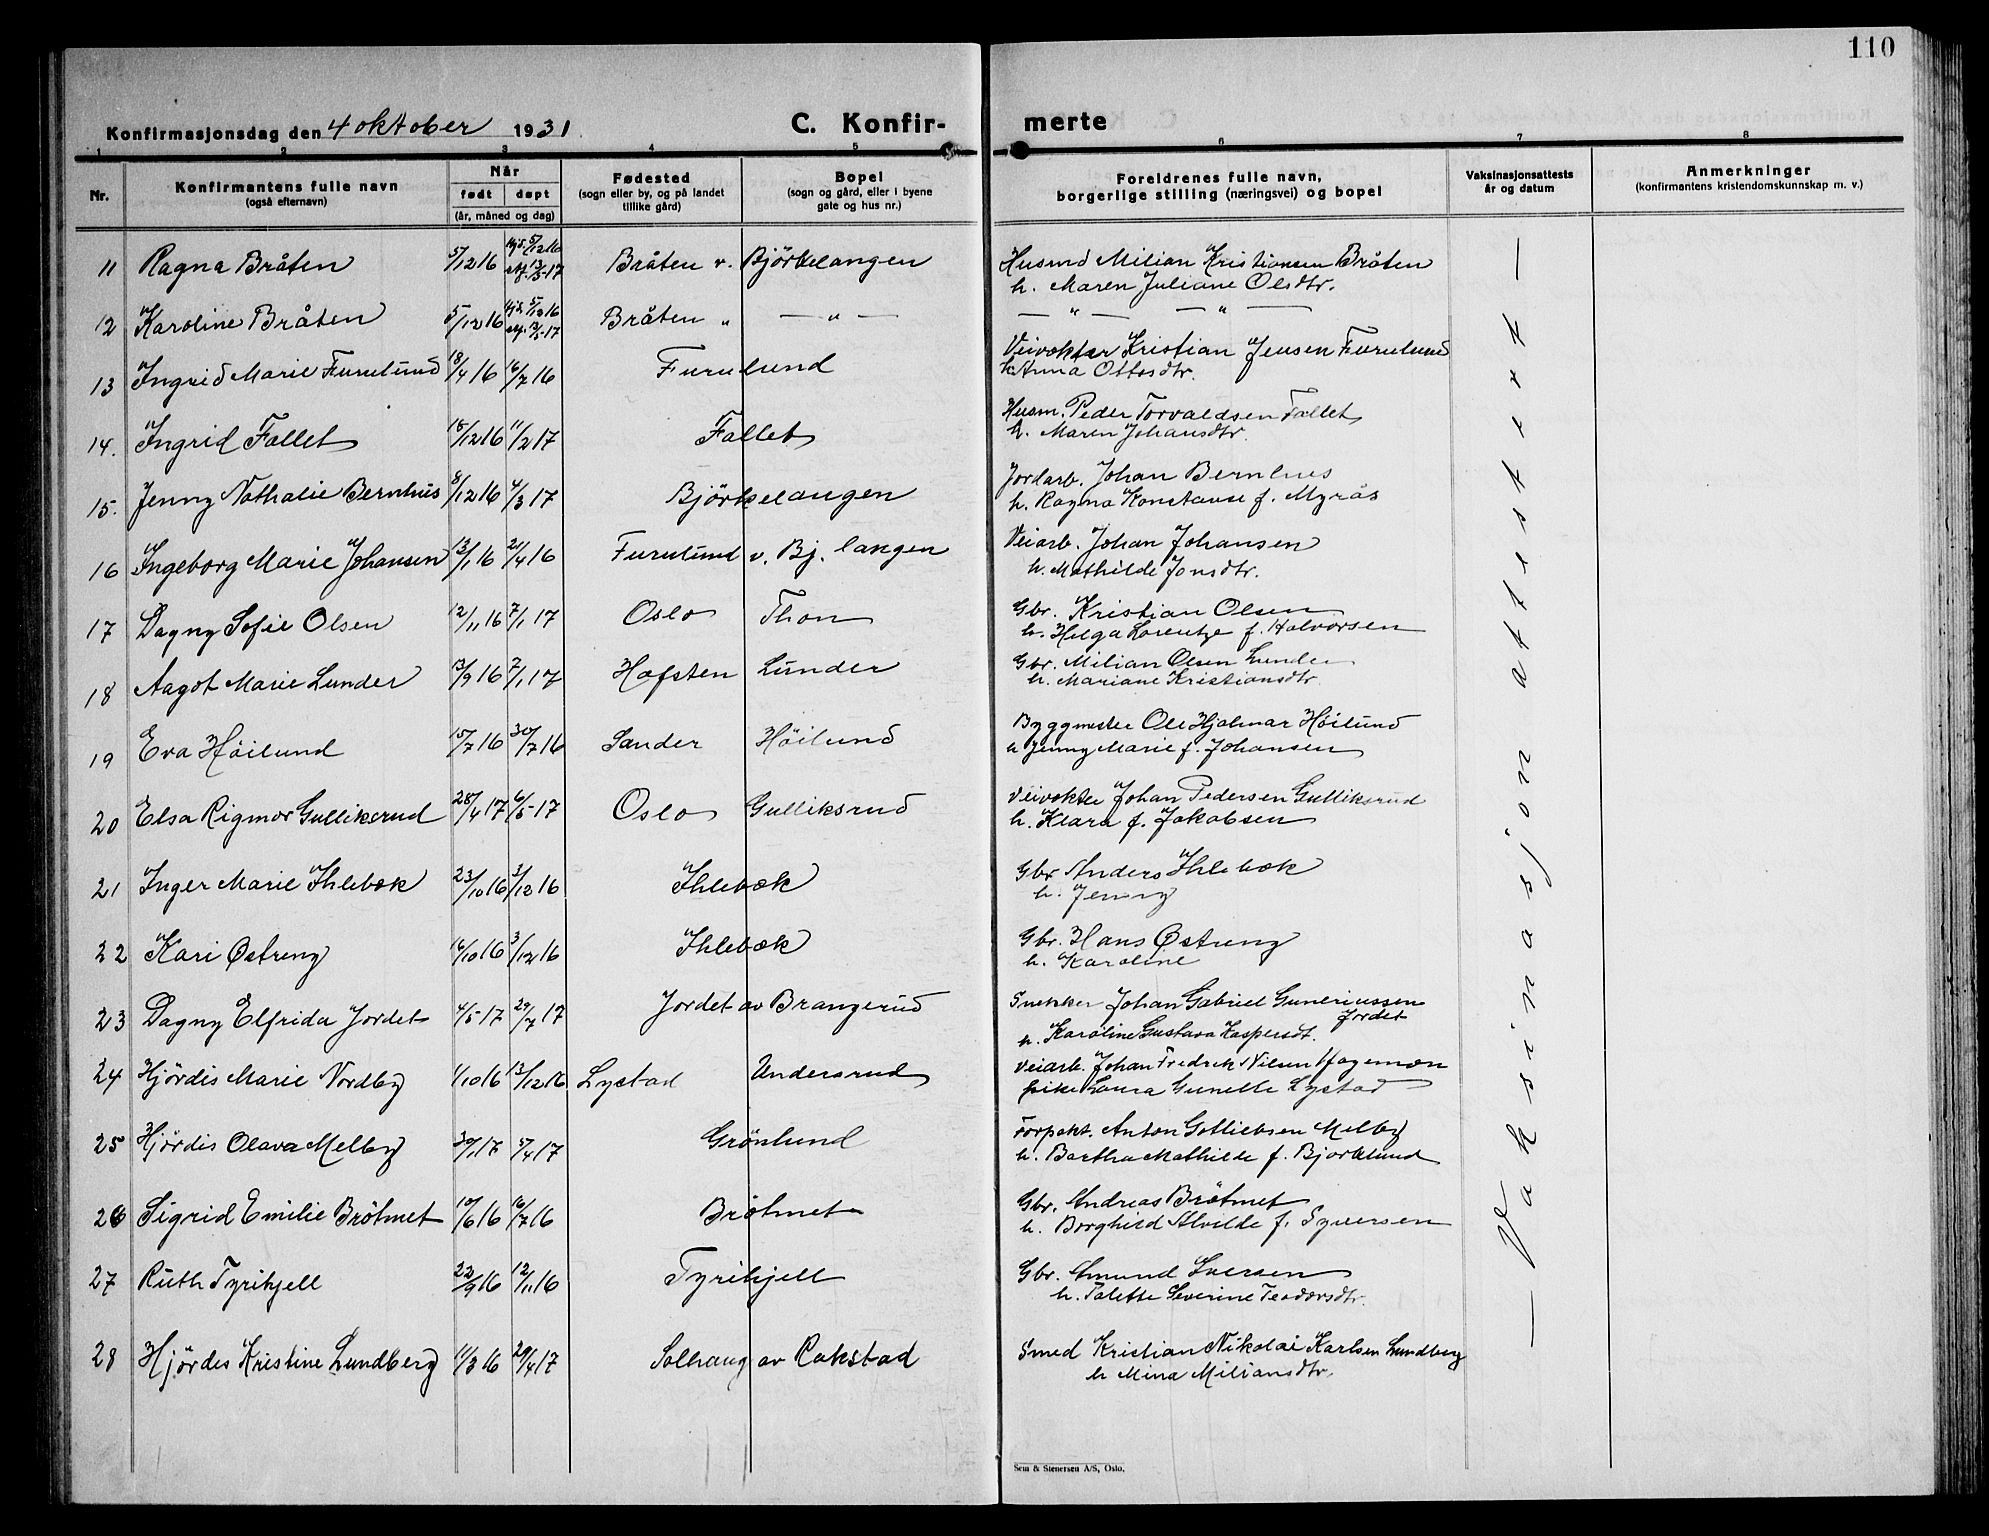 110
Konfirmasjonsdag den 4 oktober 1931
C. Konfir-
merte
1 2 3 4 5 6 7 8
Nr.
Konfirmantens fulle navn
(også efternavn)
Når
født døpt
(år, måned og dag)
Fødested
(sogn eller by, og på landet
tillike gård)
Bopel
(sogn og gård, eller i byene
gate og hus nr.)
Foreldrenes fulle navn,
borgerlige stilling (næringsvei) og bopel
Vaksinasjonsattests
år og datum
Anmerkninger
(konfirmantens kristendomskunnskap m. v.)
11 Ragna Bråten 5/12 16 hjd. 5/12 16 Bråten v. Björkelangen Husmd Milian Kristiansen Bråten
13/5-17 h. Maren Juliane Olsdtr.
12 Karoline Bråten 5/12 16 hjd. 5/12 16 Bråten „ — „ — — „ — — „ —
13/5-17
13 Ingrid Marie Furulund 18/4 16 16/7 16 Furulund Veivokter Kristian Jensen Furulund
h. Anna Ottosdtr.
14. Ingrid Fallet 15/12 16 11/2 17 Fallet Husm. Peder Torvaldsen Fallet
h. Maren Johansdtr.
15. Jenny Nathalie Bernhus 8/12 16 4/3 17 Björkelangen Jordarb. Johan Bernhus
h. Ragna Konstanse f. Myrås
16 Ingeborg Marie Johansen 13/1 16 24/4 16 Furulund v. Bj. langen Veiarb. Johan Johansen
h. Mathilde Jonsdtr.
17 Dagny Sofie Olsen 12/11 16 7/1 17 Oslo Thon Gbr. Kristian Olsen
h. Helga Lorentze f. Halvorsen
18 Aagot Marie Lunder 13/9 16 7/1 17 Hofsten Lunder Gbr. Milian Olsen Lunder
h. Mariane Kristiansdtr.
19 Eva Höilund 15/7 16 30/7 16 Sander Höilund Byggmester Ole Hjalmar Höilund
h Jenny Marie f. Johansen
20 Elsa Rigmor Gulliksrud 28/4 17 6/5-17 Oslo Gulliksrud Veivokter Johan Pedersen Gulliksrud
h. Klara f. Jakobsen
21 Inger Marie Ihlebæk 23/10 16 3/12 16 Ihlebæk Gbr Anders Ihlebæk
h. Jenny
22 Kari Østreng 16/10 16 3/12 16 Ihlebæk Gbr. Hans Østreng
h. Karoline
23 Dagny Elfrida Jordet 4/5-17 29/7 17 Jordet av Brangerud Snekker Johan Gabriel Guneriussen
Jordet
h. Karoline Gustava Kaspersdt.
24 Hjördis Marie Nordby 1/10 16 13/12 16 Lystad Undersrud Veiarb. Johan Fredrik Nilsen Hageman
pike Laura Gunelle Lystad
25 Hjördis Olava Melby 30/1 17 5/4 17 Grönlund Forpakt. Anton Gotliebsen Melby
h. Bertha Mathilde f. Bjorklund
26 Sigrid Emilie Brötmet 10/6 16 16/7 16 Brötmet Gbr. Andreas Brötmet
h. Borghild Alvilde f. Syversen
27 Ruth Tyrihjell 22/9 16 12/11 16 Tyrihjell Gbr. Amund Iversen
h. Talette Severine Teodorsdtr.
28 Hjördis Kristine Lundberg 11/3 16 29/4 17 Solhaug av Rakstad Smed Kristian Nikolai Karlsen Lundberg
h Mina Miliansdtr.
— Vaksinasjon attestert —
Sem & Stenersen A/S, Oslo.